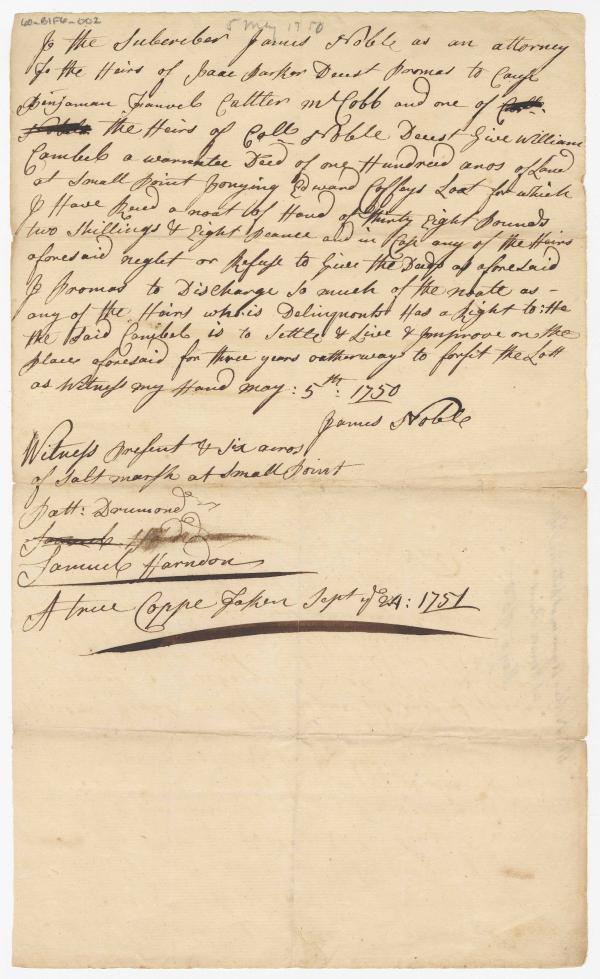 60-B1F6-002
5 May 1750
I the Subscriber James Noble as an attorney
To the Heirs of Isaac Parker Decest Promas to Cause
Binjaman Franvel Cattler McCobb and one of Coll:
Noble the Heirs of Coll Noble Decest Give William
Cambel a warrantee Deed of one Hundreed acros of Land
at Small Point Jonying Edward Coffeys Loot for which
I Have Rased a noat of Hand of Thirty Eight Pounds
two Shillings & Eight Peance and in Case any of the Hairs
aforesaid neglet or Refuse to Give the Deeds as aforesaid
I Promas to Discharge So much of the noate as -
any of the Hairs who is Delinqnont Has a Right to: He
the said Cambel is to Settle & Live & Improve on the
place aforesaid for three years ootherways to forfit the Lott
as Witness my Hand May: 5th: 1750
James Noble
Witness present & Six acros
of Salt marsh at Small Point
Patt: Drumond
Samuel
Samuel Harndon
A true Coppe Taken Sept ye 24: 1751